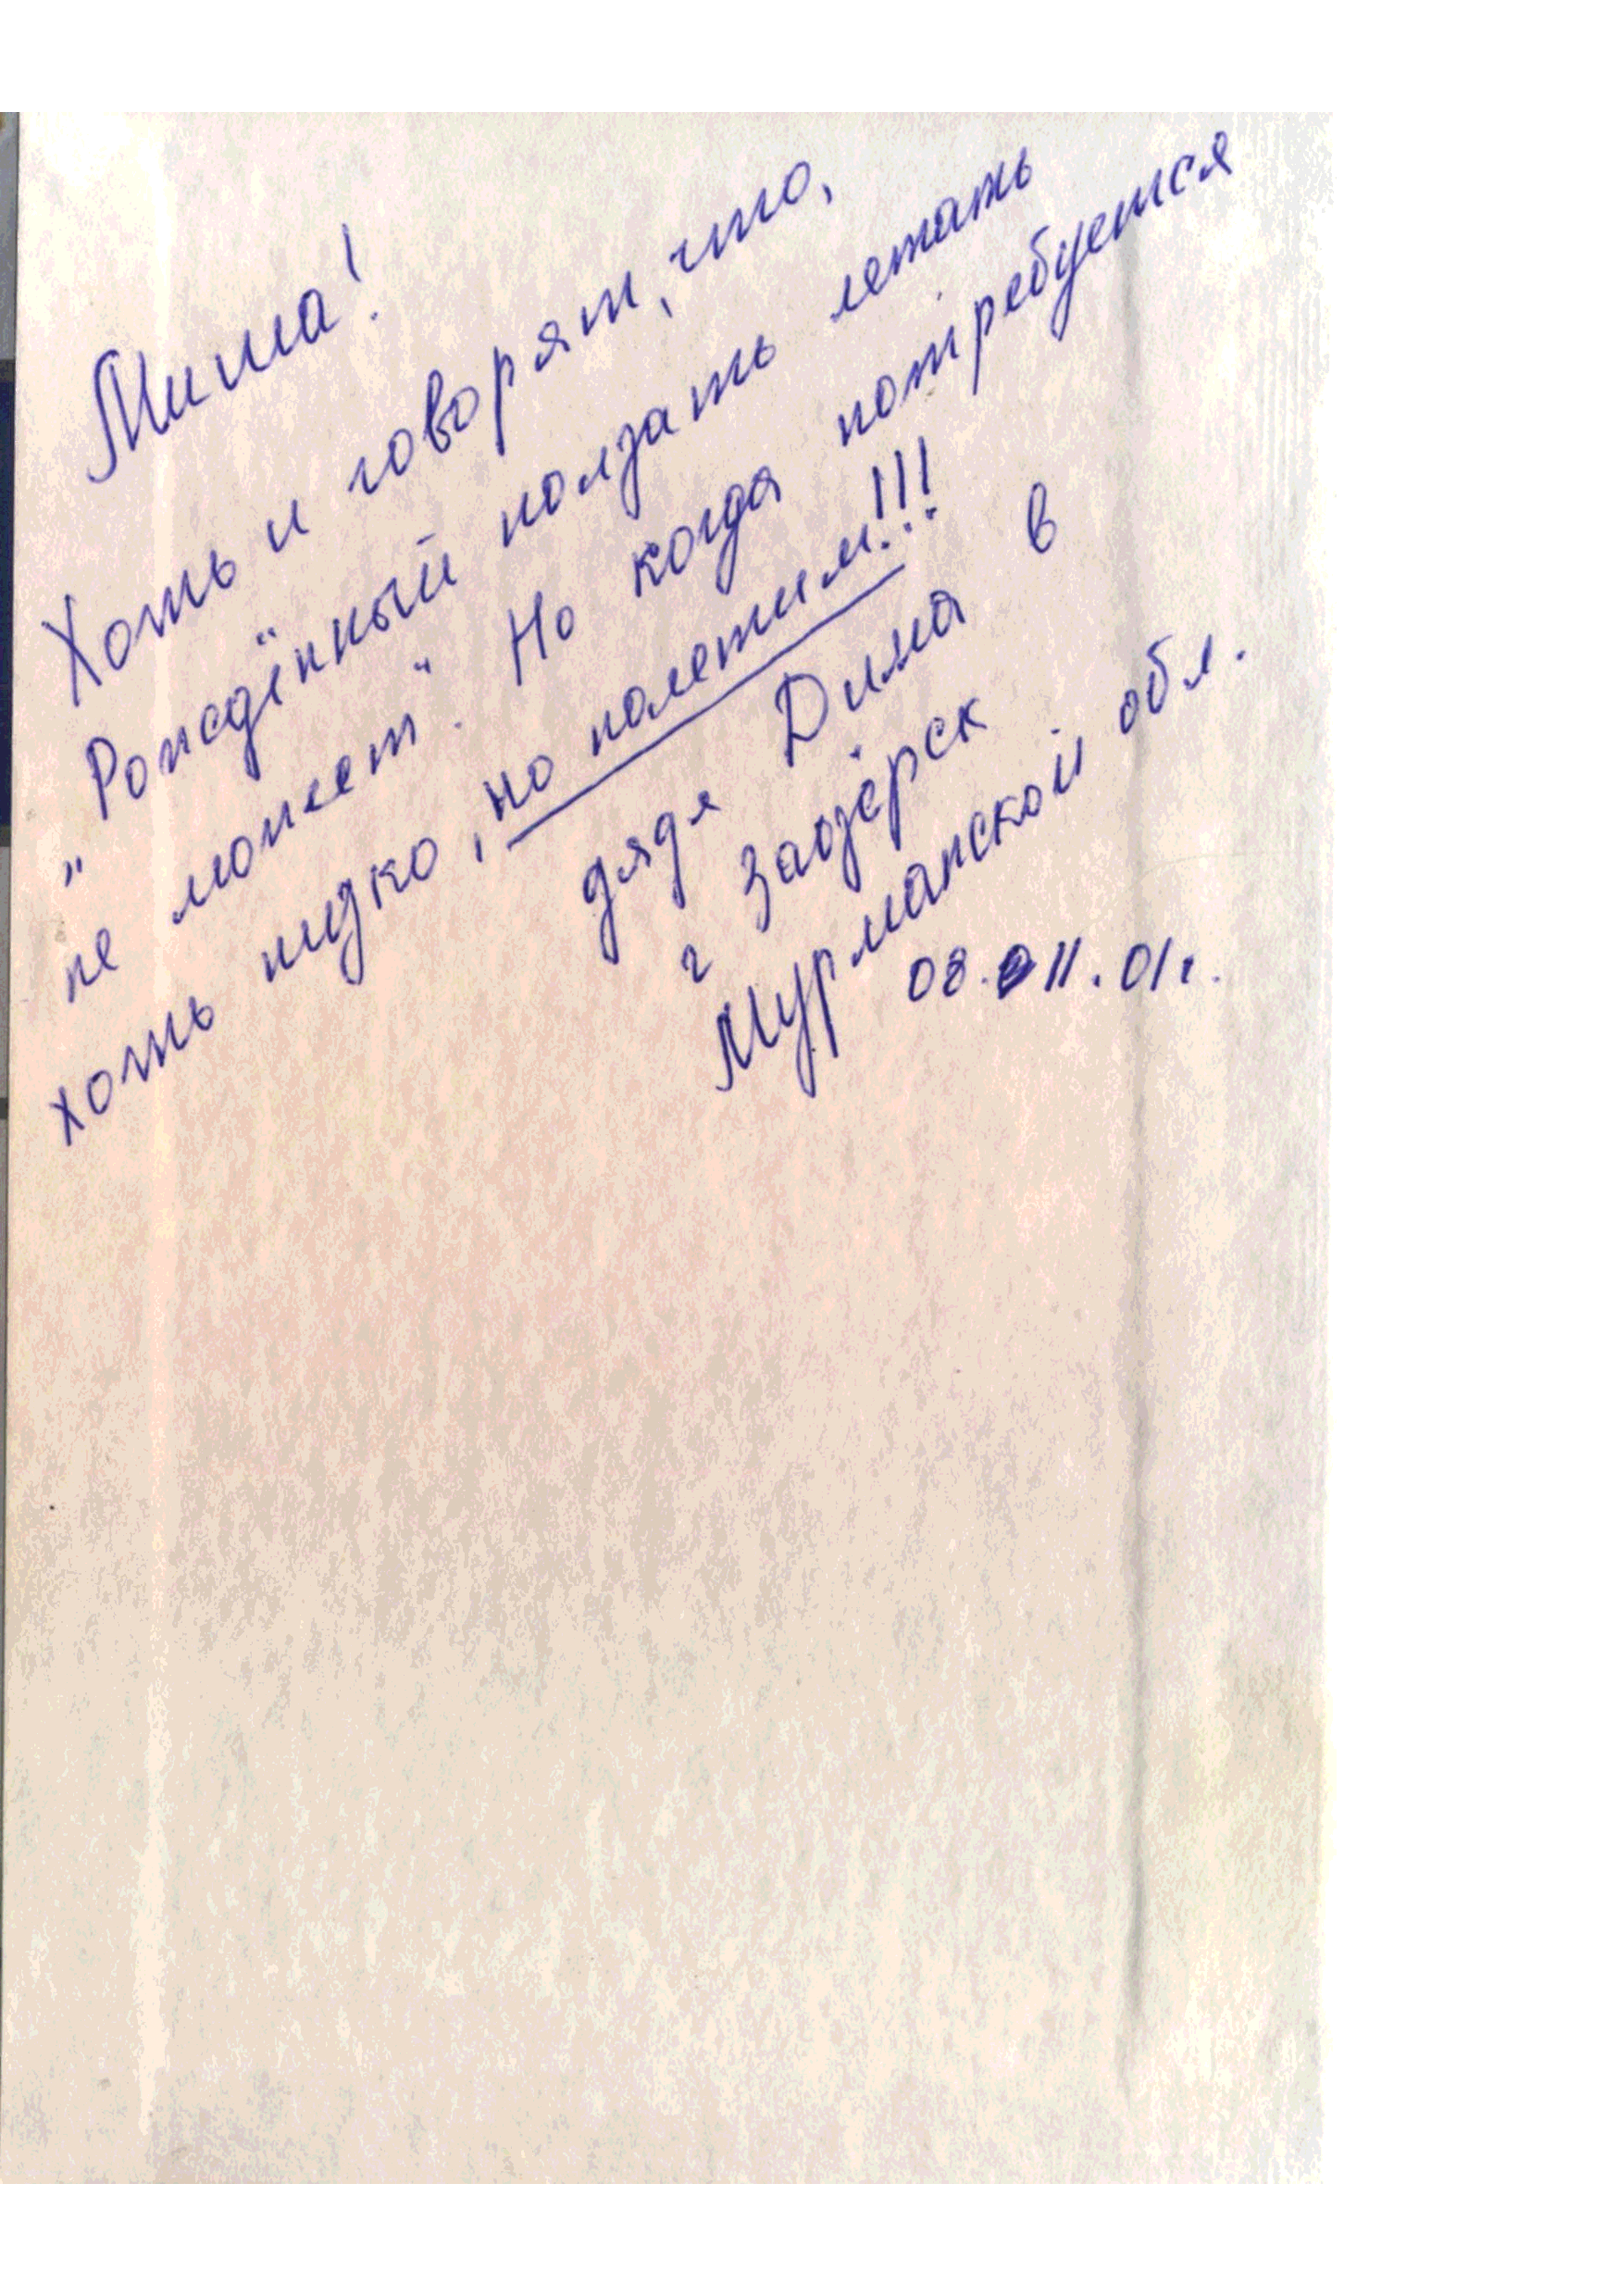 Миша!
Хоть и говорят, что,
"Рождённый ползать летать
не может". Но когда потребуется
хоть низко, но полетим!!!
дядя Дима в
г Заозёрск
Мурманской обл.
08.11.01г.